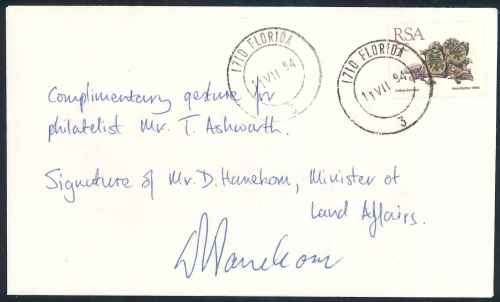 1710 FLORIDA
11 VII 94
1710 FLORIDA
11 VII 94
3
RSA
Complimentary gesture for
philatelist Mr. T. Ashworth.
Signature of Mr. D. Hanekom, Minister of
Land Affairs.
D Hanekom